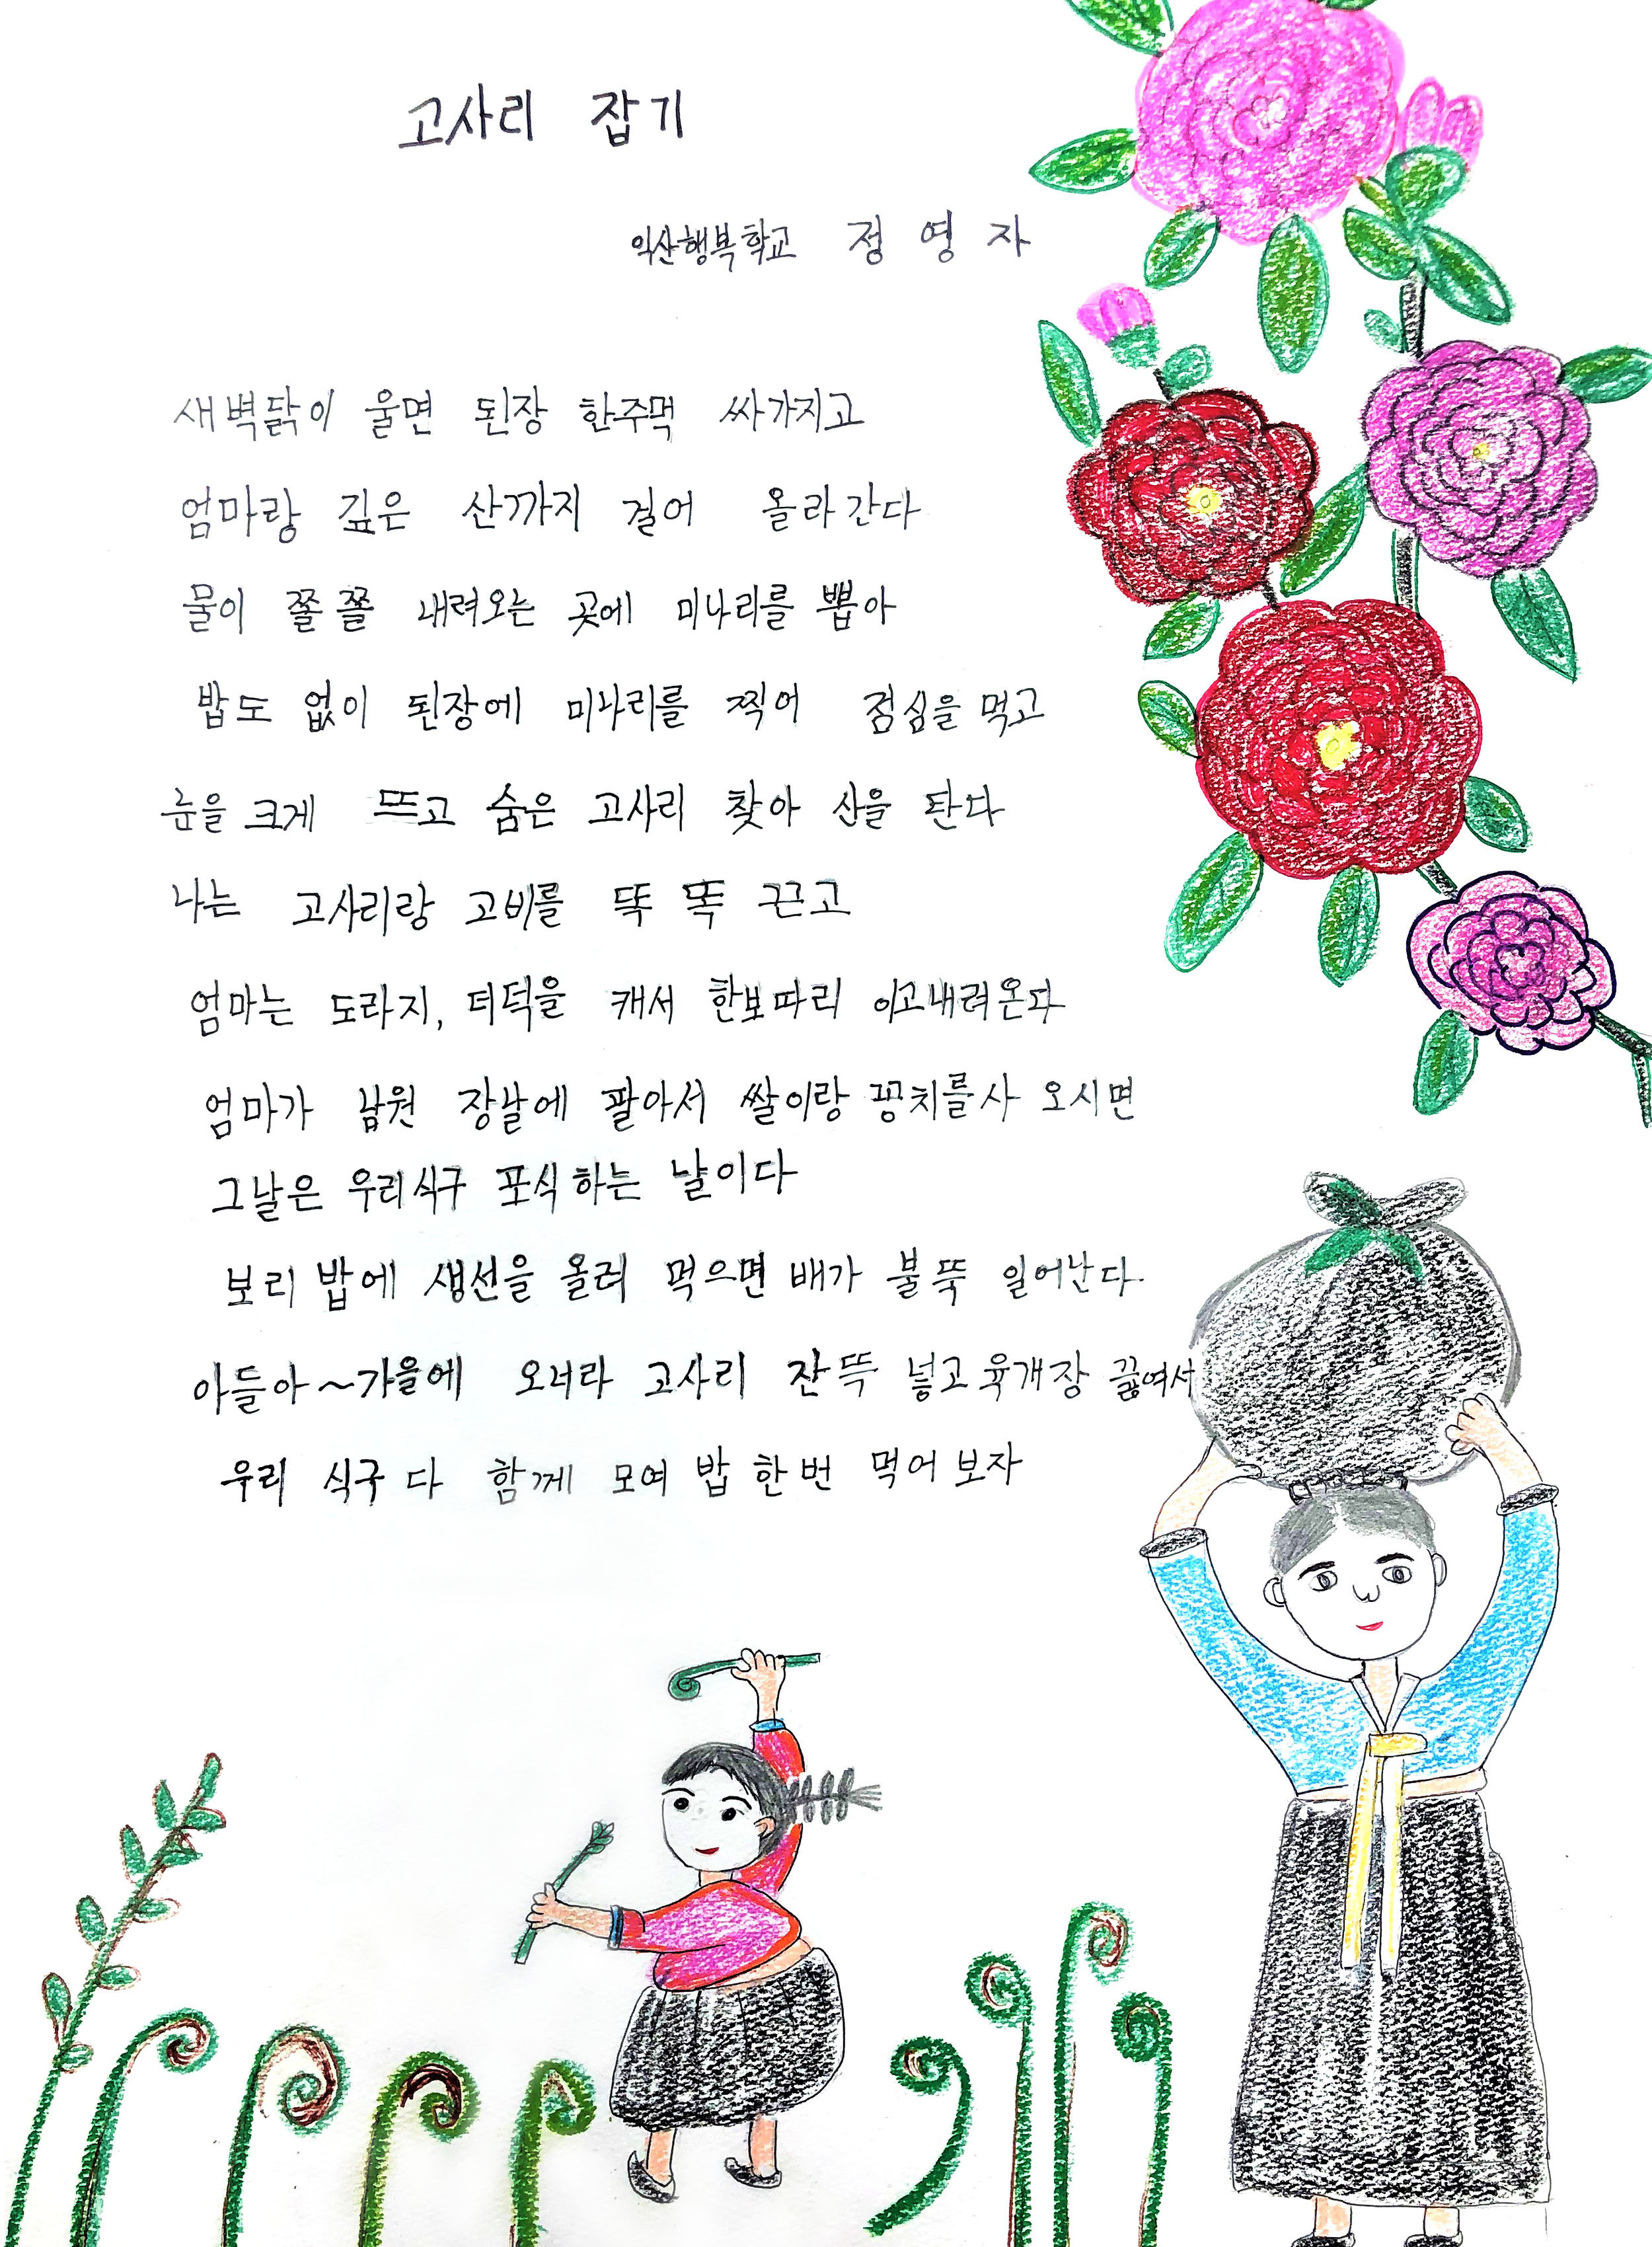 고사리 잡기
익산행복학교 정영자
새벽닭이 울면 된장 한주먹 싸가지고
엄마랑 깊은 산까지 걸어 올라간다
물이 쫄쫄 내려오는 곳에 미나리를 뽑아
밥도 없이 된장에 미나리를 찍어 점심을 먹고
눈을 크게 뜨고 숨은 고사리 찾아 산을 탄다
나는 고사리랑 고비를 뚝 뚝 끈고
엄마는 도라지, 더덕을 캐서 한보따리 이고내려온다
엄마가 남원 장날에 팔아서 쌀이랑 꽁치를사 오시면
그날은 우리식구 포식 하는 날이다
보리 밥에 생선을 올려 먹으면 배가 불뚝 일어난다.
아들아~가을에 오너라 고사리 잔뜩 넣고 육개장 끓여서
우리 식구 다 함께 모여 밥 한번 먹어 보자